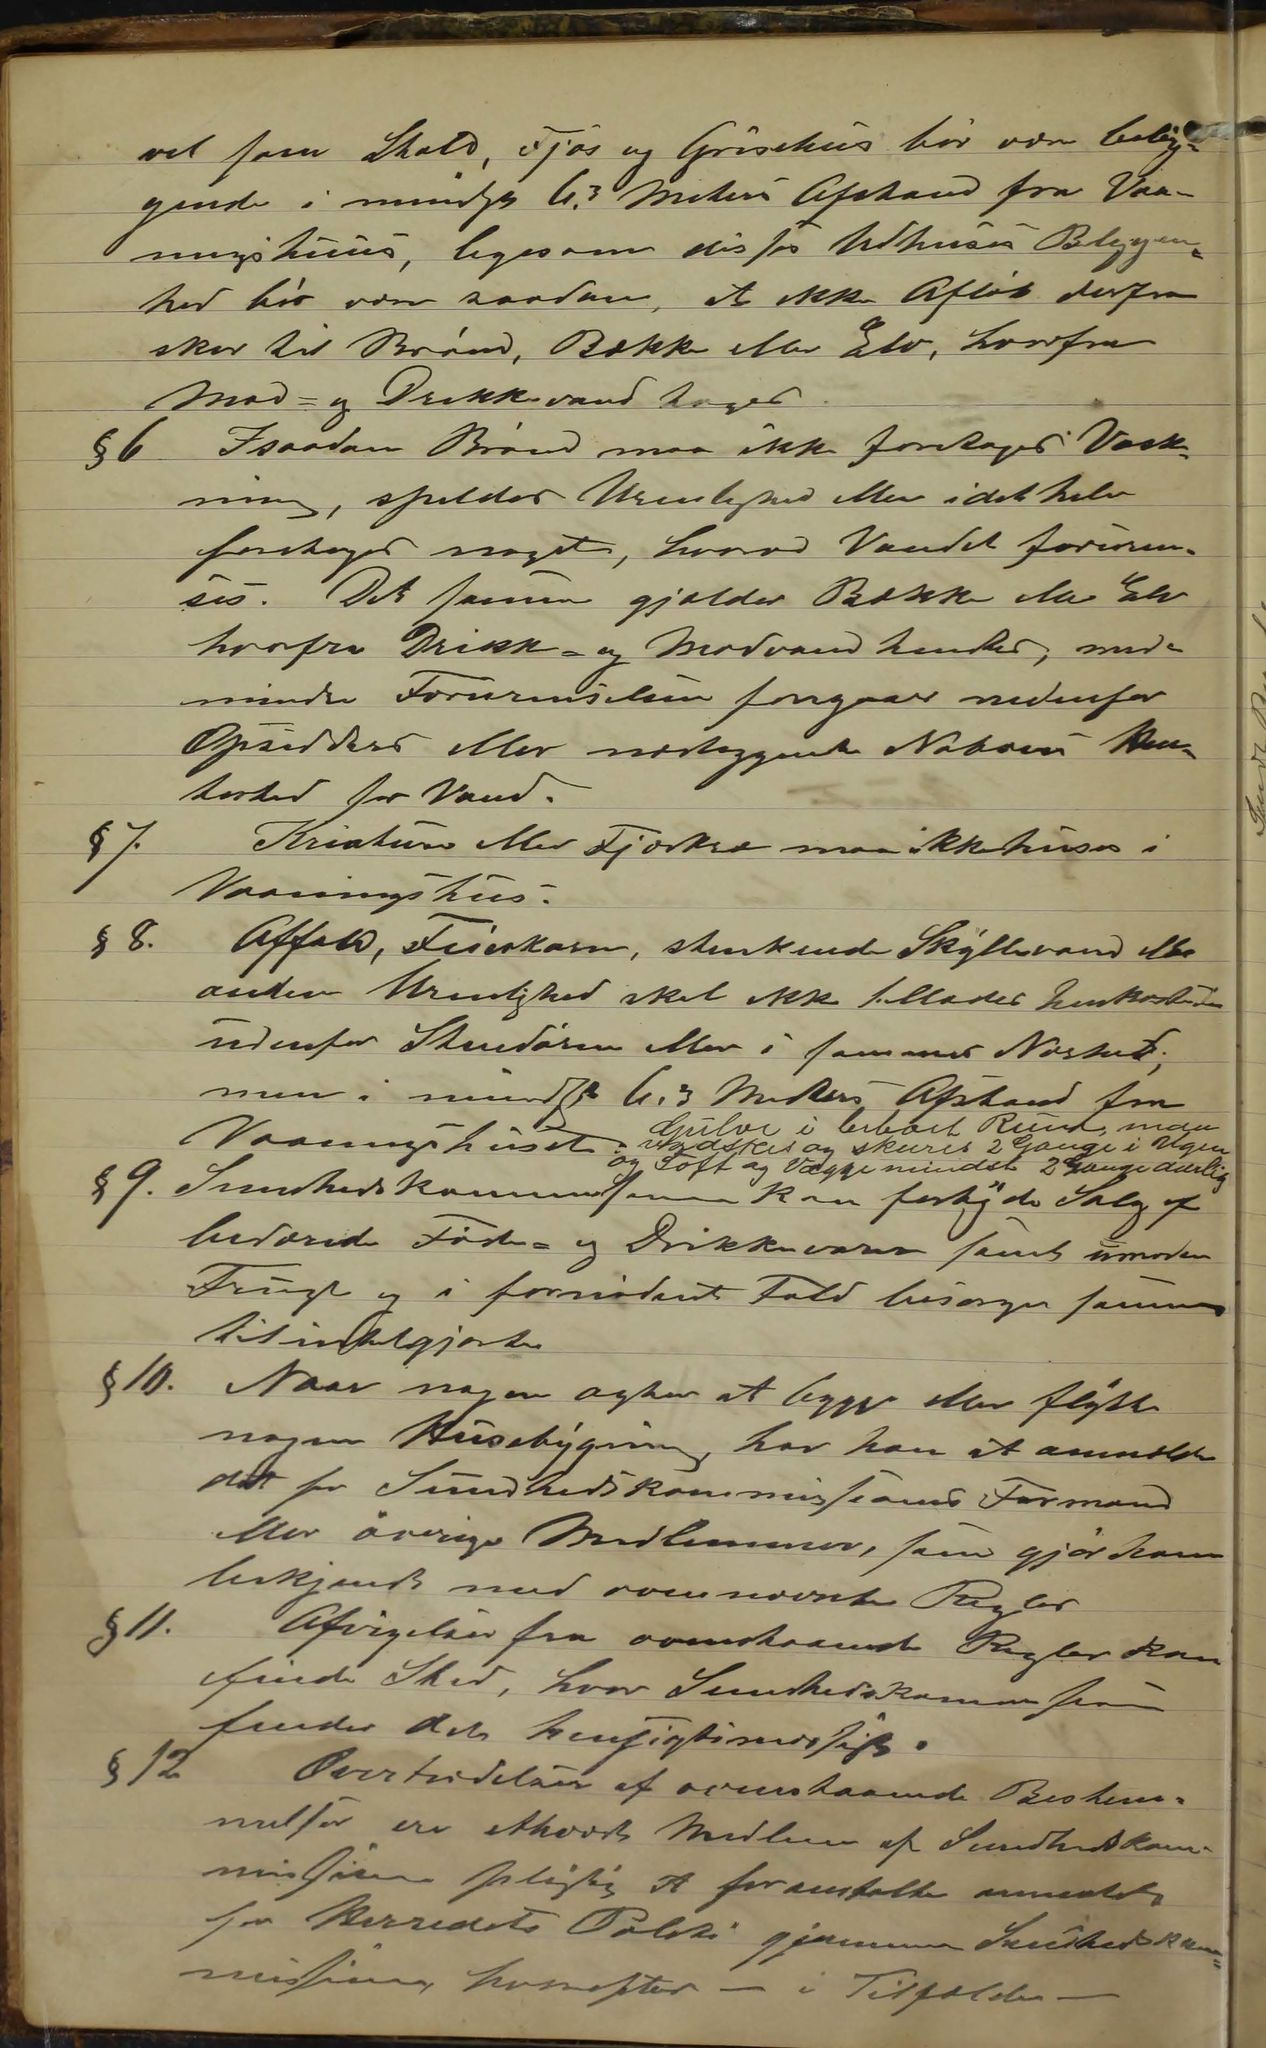 vel som Stald, Fjøs og Grisehus bør være belig-
gende i mindst 6.3 Meters Afstand fra Vaa-
ningshuus, ligesom disses Udhuses Beliggen-
hed bør være saadan, at ikke Afløb derfra
sker til Brønd, Bække eller Elv, hvorfra
Mad- og Drikkevand tages.
§ 6 I saadan Brønd maa ikke foretages Vask-
ning, spildes Urenlighed eller i det hele
foretages noget, hvorved Vandet foruren-
ses. Det samme gjælder Bække eller Elv
hvorfra Drikke- og Madvand hentes, med-
mindre Forurenselsen foregaar nedenfor
Opsidders eller nærliggende Naboers Hen-
tested for Vand.
§ 7. Kreature eller Fjærkræ maa ikke huses i
Vaaningshus.
§ 8. Affald, Feieskarn, stinkende Skyllevand eller
anden Urenlighed skal ikke tillades henkastede
udenfor Stuedøren eller i sammes Nærhed,
men i mindst 6.3 Meters Afstand fra
Vaaningshuset. Gulve i beboet Rum maa
vadskes og skures 2 Gange i Ugen
og Loft og Vægge mindst 2 Gange aarlig
§ 9. Sundhedskommissionen kan forbyde Salg af
bedærvede Føde- og Drikkevarer samt umoden
Frugt og i fornødent Fald besørge samme
tilintetgjorte
§ 10. Naar nogen agter at bygge eller flytte
nogen Husebygning, har han at anmelde
det for Sundhedskommissionens Formand
eller øvrige Medlemmer, som gjør ham
bekjendt med ovennævnte Regler
§ 11. Afvigelser fra ovenstaaende Regler kan
finde Sted, hvor Sundhedskommissionen
finder det hensigtsmæssigt.
§ 12 Overtrædelser af ovenstaaende Bestem-
melser er ethvert Medlem af Sundhedskom-
missionen pligtig at foranstalte anmeldt
for Herredets Politi gjennem Sundhedskom-
missionen, hvorefter — i Tilfælde —